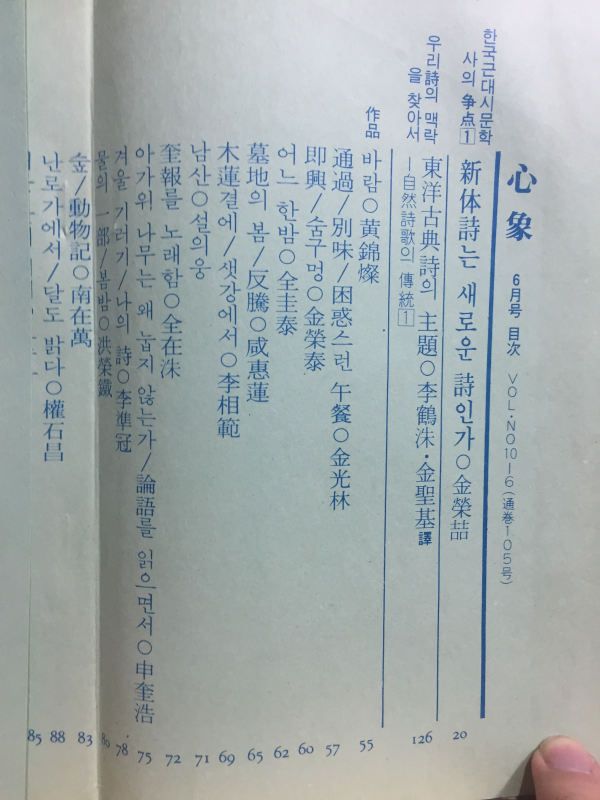 心象 6月号 目次 VOL·NO10-6(通巻105号)
한국근대시문학
사의 争点 1
新体詩는 새로운 詩인가○金榮喆 20
우리詩의 맥락
을 찾아서
東洋古典詩의 主題○李鶴洙·金聖基譯 126
—自然詩歌의 傳統 1
作品
바람○黃錦燦 55
通過/別味/困惑스런 午餐○金光林 57
即興/숨구멍○金榮泰 60
어느 한밤○全圭泰 62
墓地의 봄/反騰○咸惠蓮 65
木蓮곁에/샛강에서○李相範 69
남산○설의웅 71
奎報를 노래함○全在洙 72
아가위 나무는 왜 눕지 않는가/論語를 읽으면서○申奎浩 75
겨울 기러기/나의 詩○李準冠 78
물의 一部/봄밤○洪榮鐵 80
숲/動物記○南在萬 83
난로가에서/달도 밝다○權石昌 88
85